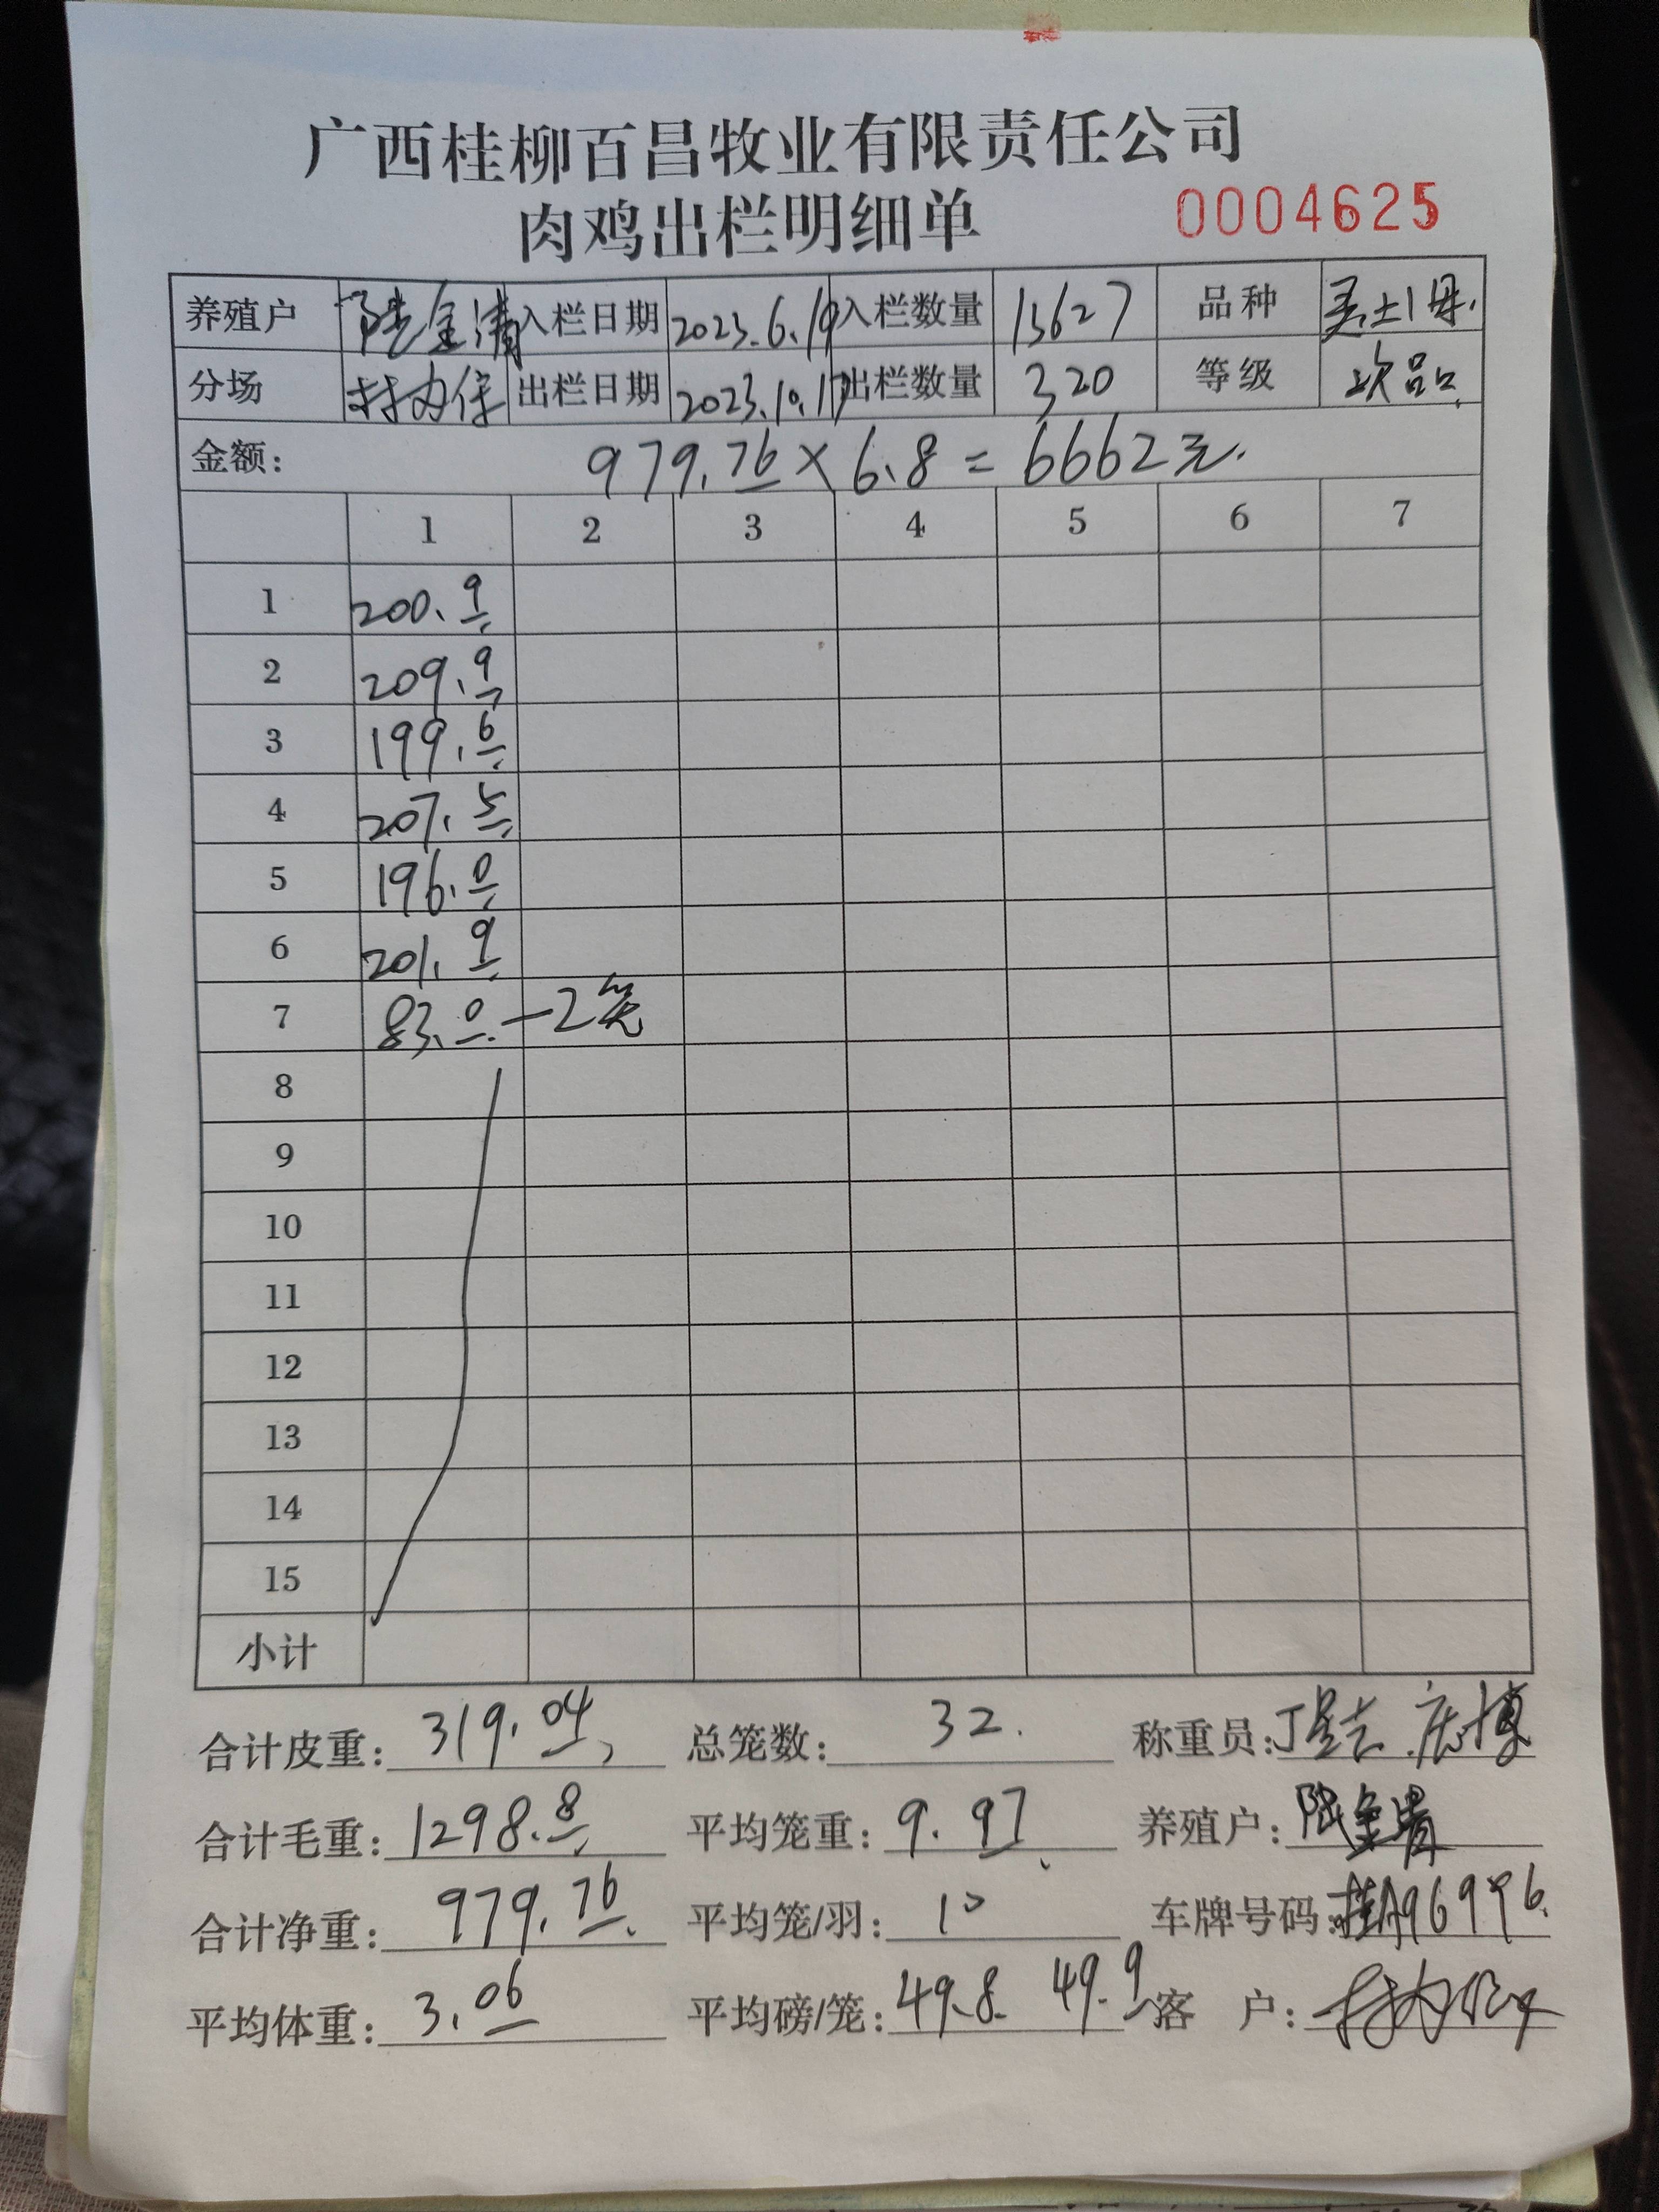 广西桂柳百昌牧业有限责任公司
肉鸡出栏明细单 0004625
养殖户 陆金清 入栏日期 2023.6.19 入栏数量 13627 品种 土1母.
分场 林力保 出栏日期 2023.10.17 出栏数量 320 等级 次品
金额: 979.76×6.8=6662元.
1 2 3 4 5 6 7
1 200.9
2 209.9
3 199.6
4 207.5
5 196.0
6 201.9
7 83.0 —2笼
8
9
10
11
12
13
14
15
小计
合计皮重: 319.04 总笼数: 32. 称重员:
合计毛重: 1298.8 平均笼重: 9.97 养殖户: 陆金清
合计净重: 979.76 平均笼/羽: 10 车牌号码: 桂A96996.
平均体重: 3.06 平均磅/笼: 49.8 49.9 客 户: